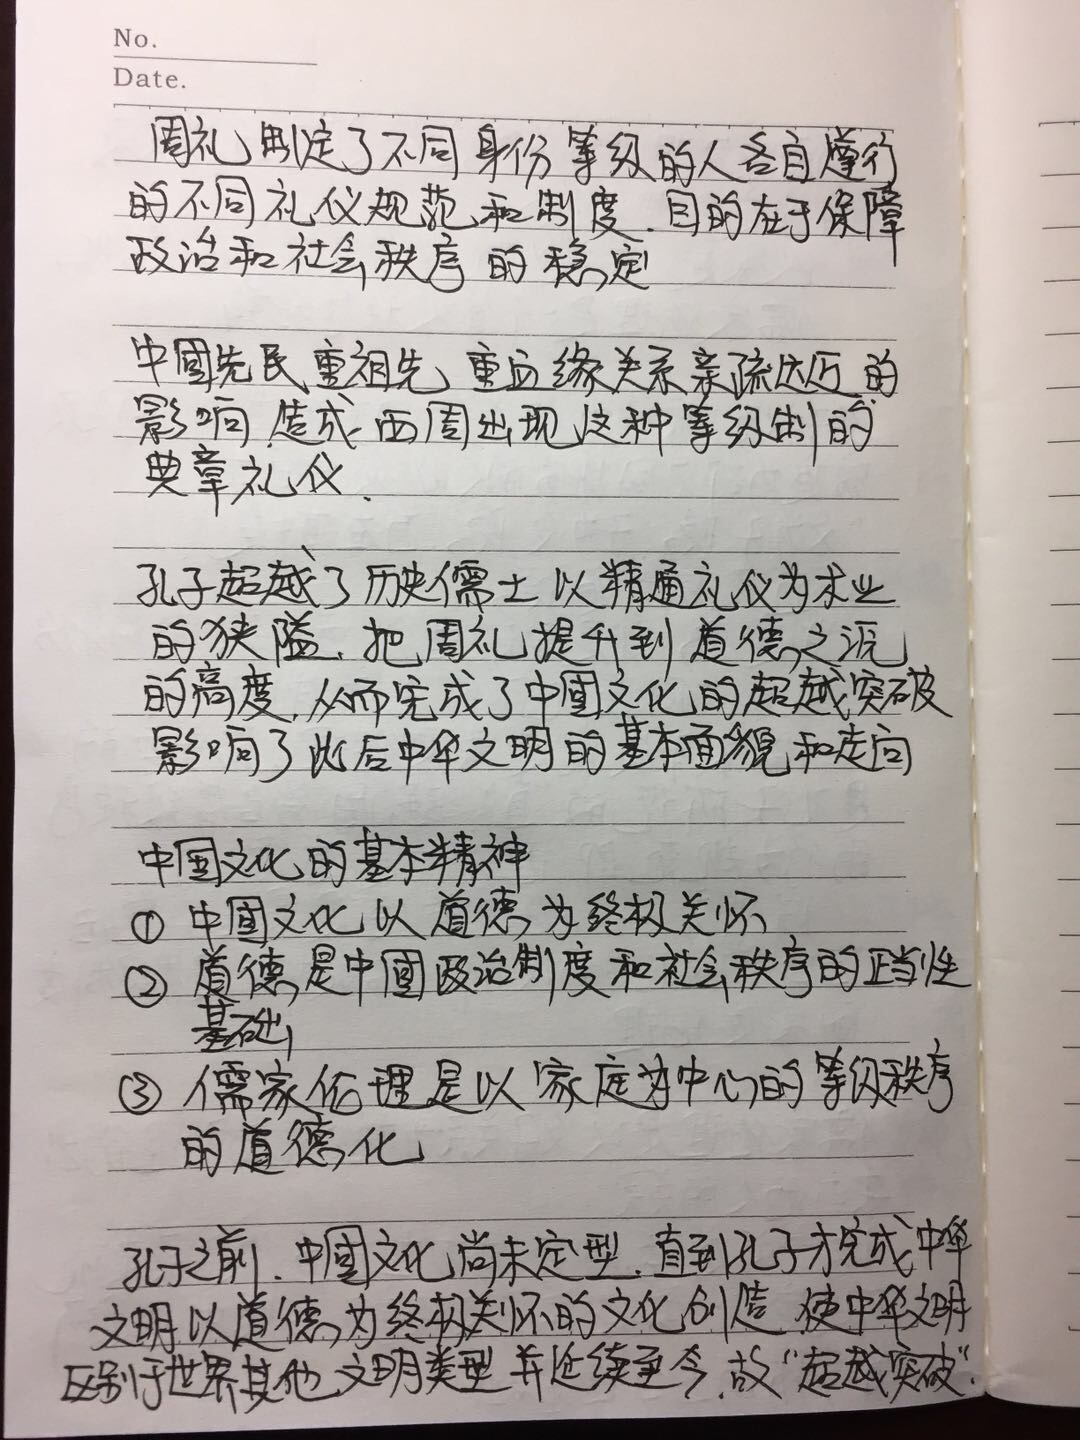 No.
Date.
周礼制定了不同身份等级的人各自遵行
的不同礼仪规范和制度.目的在于保障
政治和社会秩序的稳定
中國先民重祖先,重血缘关系亲疏远近的
影响.造成西周出现这种等级制的
典章礼仪.
孔子超越了历史儒士以精通礼仪为术业
的狭隘.把周礼提升到道德之源
的高度.从而完成了中國文化的超越突破
影响了此后中华文明的基本面貌和走向
中国文化的基本精神
① 中國文化以道德为终极关怀
② 道德是中國政治制度和社会秩序的正当性
基础
③ 儒家伦理是以家庭为中心的等级秩序
的道德化
孔子之前.中國文化尚未定型.直到孔子才完成中华
文明以道德为终极关怀的文化创造 使中华文明
区别于世界其他文明类型并延续至今.故"超越突破".